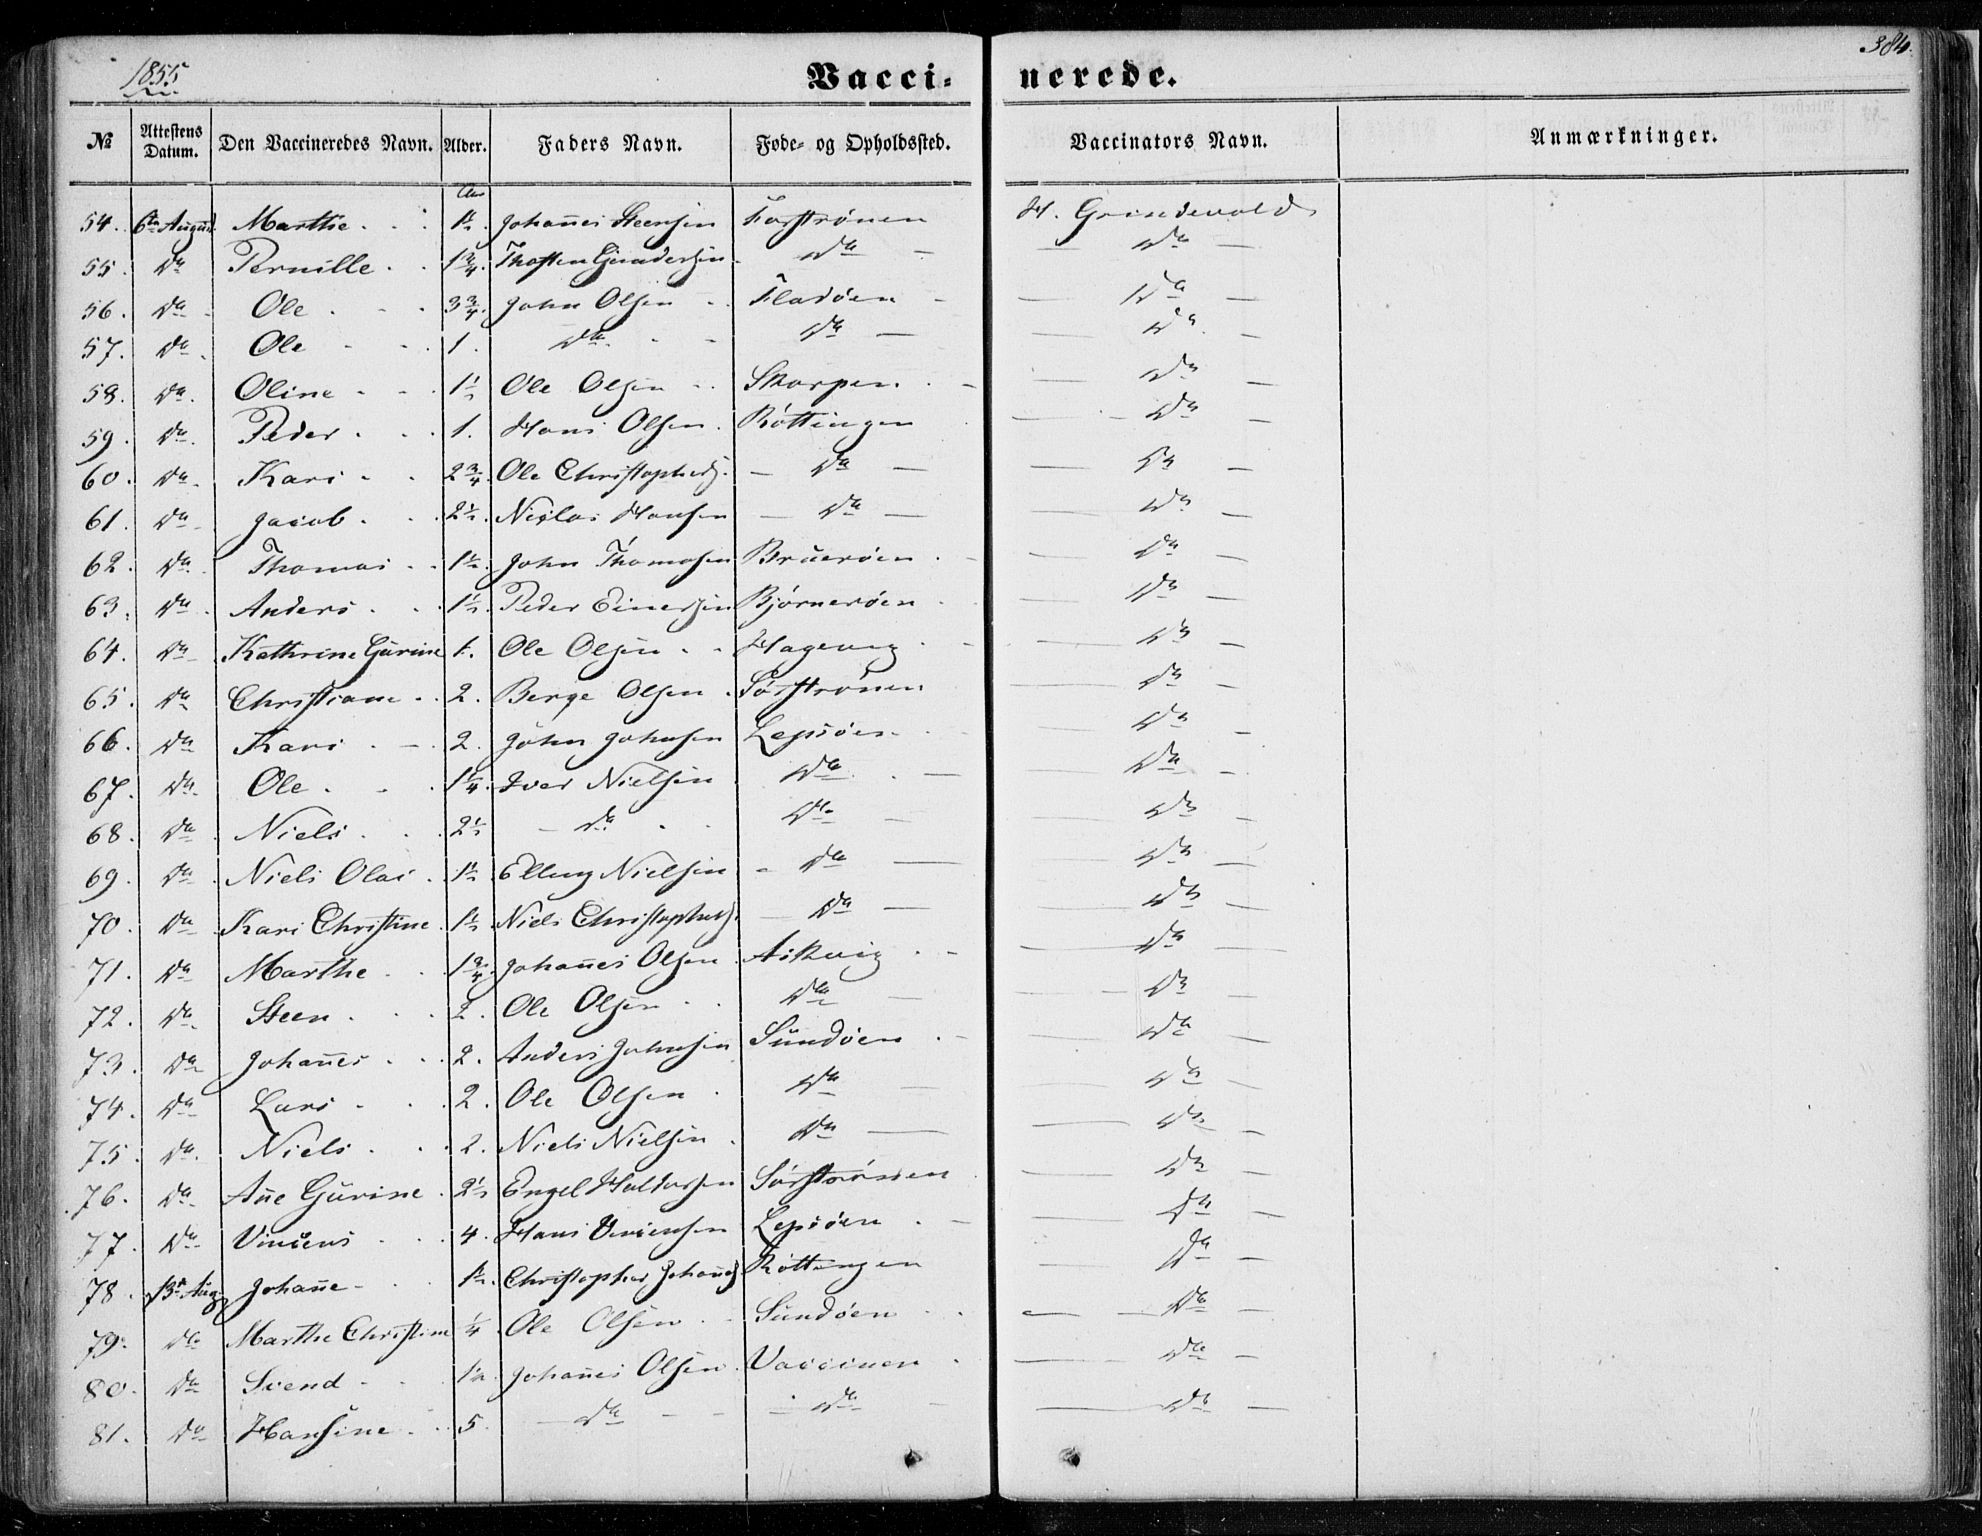 1855
384.
Vacci- nerede.
№ | Attestens Datum. | Den Vaccineredes Navn. | Alder. | Faders Navn. | Føde- og Opholdssted. | Vaccinators Navn. | Anmærkninger.
Aar
54. 6te August Marthe 1½. Johannes Steensen Forstrønen H. Grindevold
55. Do Pernille 1¾. Thosten Gundersen Do Do
56. Do Ole 3¾. John Olsen Fladøen Do
57. Do Ole 1. Do Do Do
58. Do. Oline 1½ Ole Olsen Skorpen Do
59. Do. Peder 1. Hans Olsen Røttingen Do
60. Do. Kari 2¾. Ole Christophers. Do Do
61. Do Jacob 2½. Niclas Hansen Do Do
62. Do. Thomas 1½. John Thomasen Bruerøen Do
63. Do. Anders 1½. Peder Einersen Bjørnerøen Do
64. Do Kathrine Gurine 1. Ole Olsen Hagevig Do
65. Do Christiane 2. Berge Olsen Sørstrønen Do
66. Do Kari 2. John Johnsen Lepsøen Do
67. Do. Ole 1¼. Iver Nielsen Do Do
68. Do Niels 2½ Do Do Do
69. Do Niels Olai 1½. Elling Nielsen Do Do
70. Do Kari Christine 1½ Niels Christophers. Do Do
71. Do Marthe 1¾. Johannes Olsen Askvig Do
72. Do. Steen 2. Ole Olsen Do Do
73. Do Johannes 2. Anders Johnsen Sundøen Do
74. Do Lars 2. Ole Olsen Do Do
75. Do. Niels 2. Niels Nielsen Do Do
76. Do. Ane Gurine 2½ Engel Haldorsen Sørstrønen Do
77. Do Vincens 4. Hans Vincensen Lepsøen Do
78. 13de Aug Johanne 1½. Christopher Johans. Røttingen Do
79. Do Marthe Christine ¼ Ole Olsen Sundøen Do
80. Do Svend 1½. Johannes Olsen Do
81. Do Hansine 5. Do Do Do